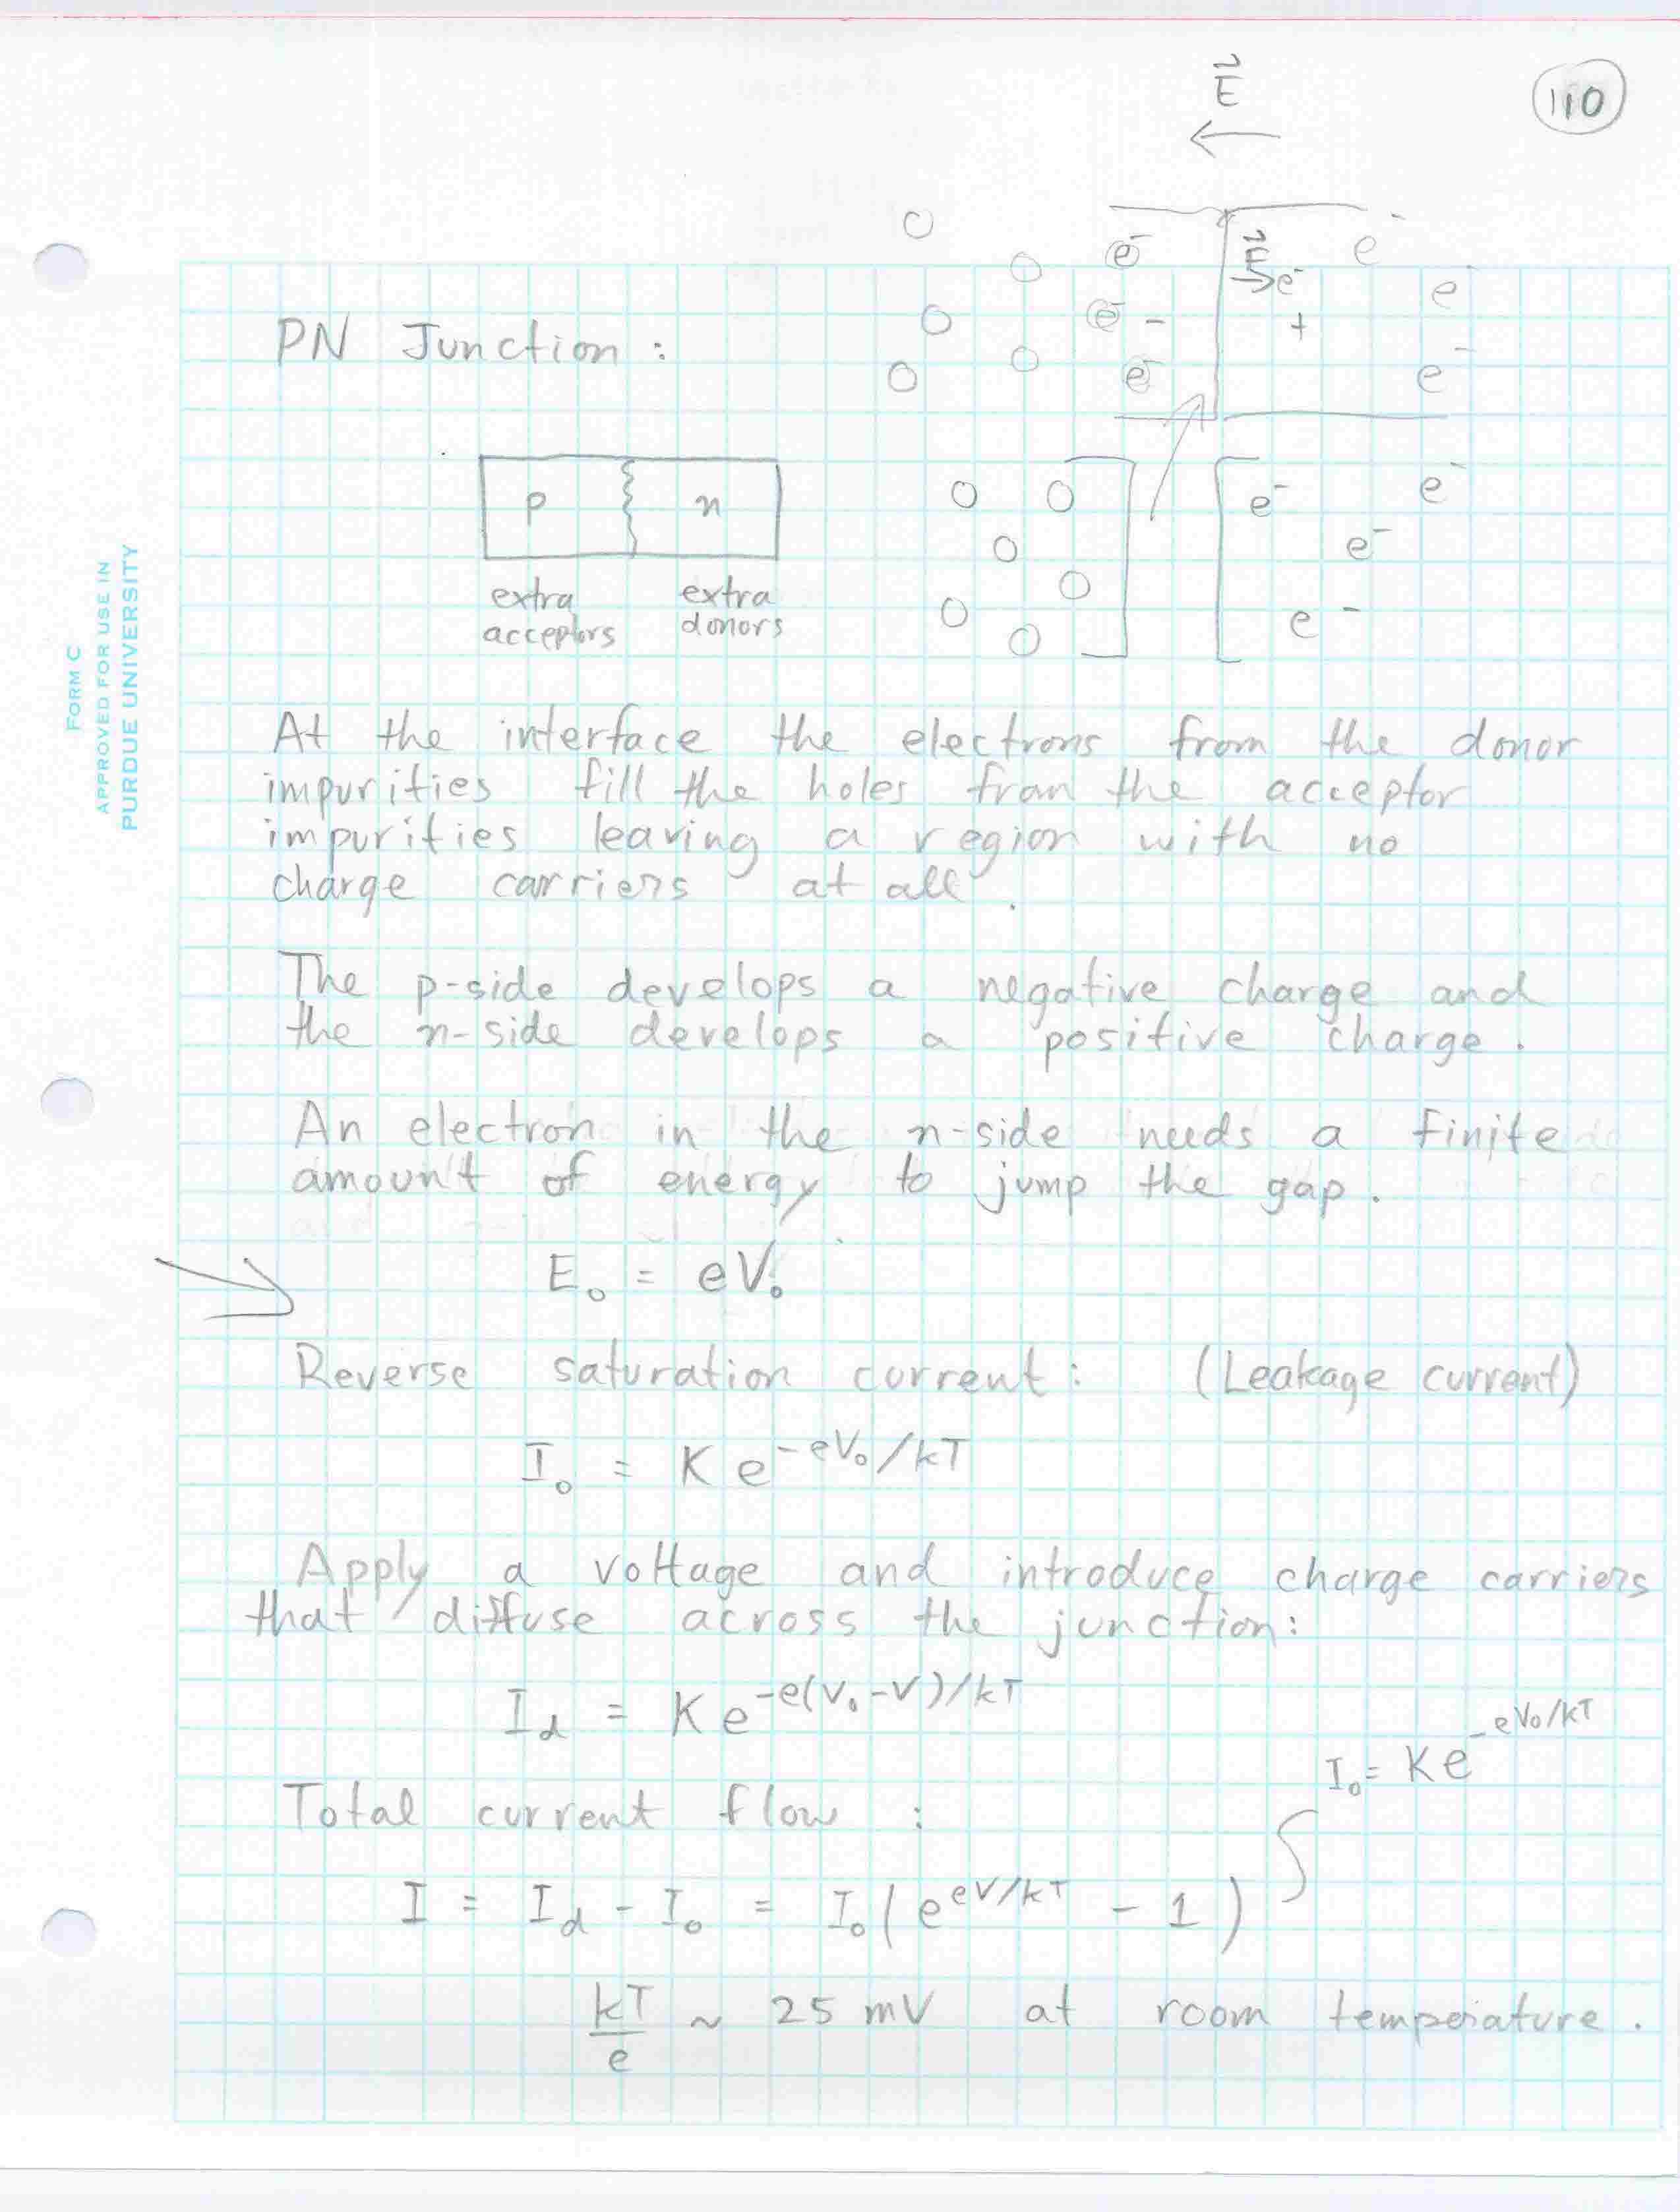 110
E
e⁻ E e⁻
e⁻ e⁻
e⁻ - +
e⁻ e⁻
PN Junction :
p n
e⁻ e⁻
e⁻
e⁻
extra extra
acceptors donors
FORM C
APPROVED FOR USE IN
PURDUE UNIVERSITY
At the interface the electrons from the donor
impurities fill the holes from the acceptor
impurities leaving a region with no
charge carriers at all .
The p-side develops a negative charge and
the n-side develops a positive charge .
An electron in the n-side needs a finite
amount of energy to jump the gap .
E₀ = eV₀
Reverse saturation current : (Leakage current)
I₀ = K e^{-eV₀/kT}
Apply a voltage and introduce charge carriers
that diffuse across the junction:
I_d = K e^{-e(V₀-V)/kT}
I₀ = K e^{-eV₀/kT}
Total current flow :
I = I_d - I₀ = I₀ ( e^{eV/kT} - 1 )
kT/e ~ 25 mV at room temperature .